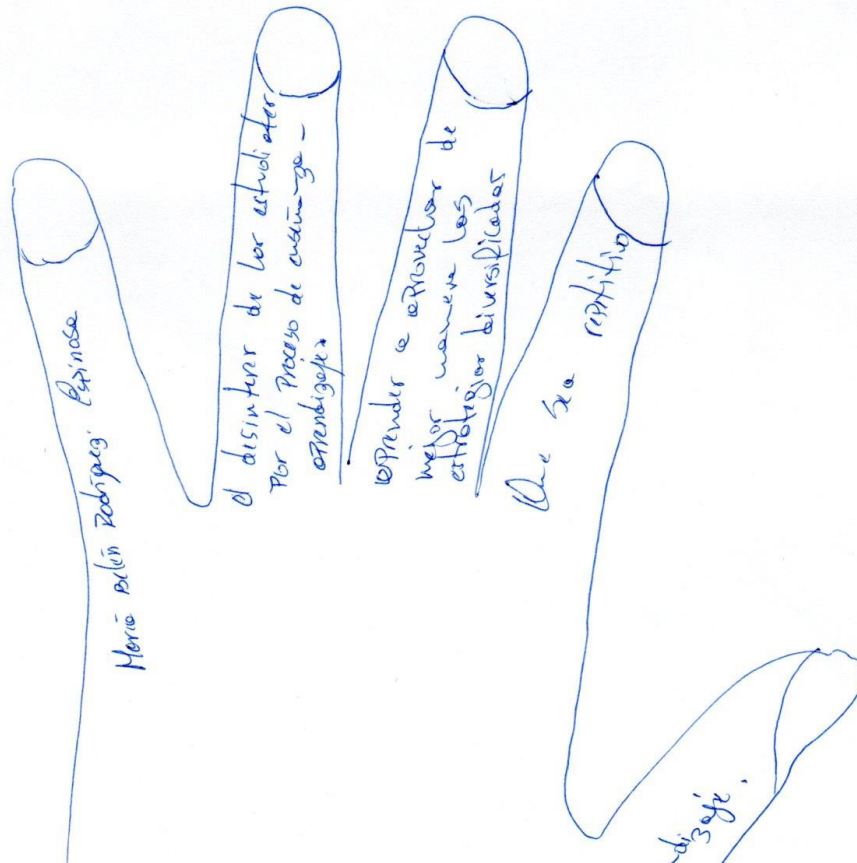 María Belén Rodríguez Espinosa
el desinteres de los estudiantes
Por el Proceso de enseñanza -
aprendizaje.
aprender a aprovechar de
mejor manera las
estrategias diversificadas
Que sea repetitivo
dizaje.